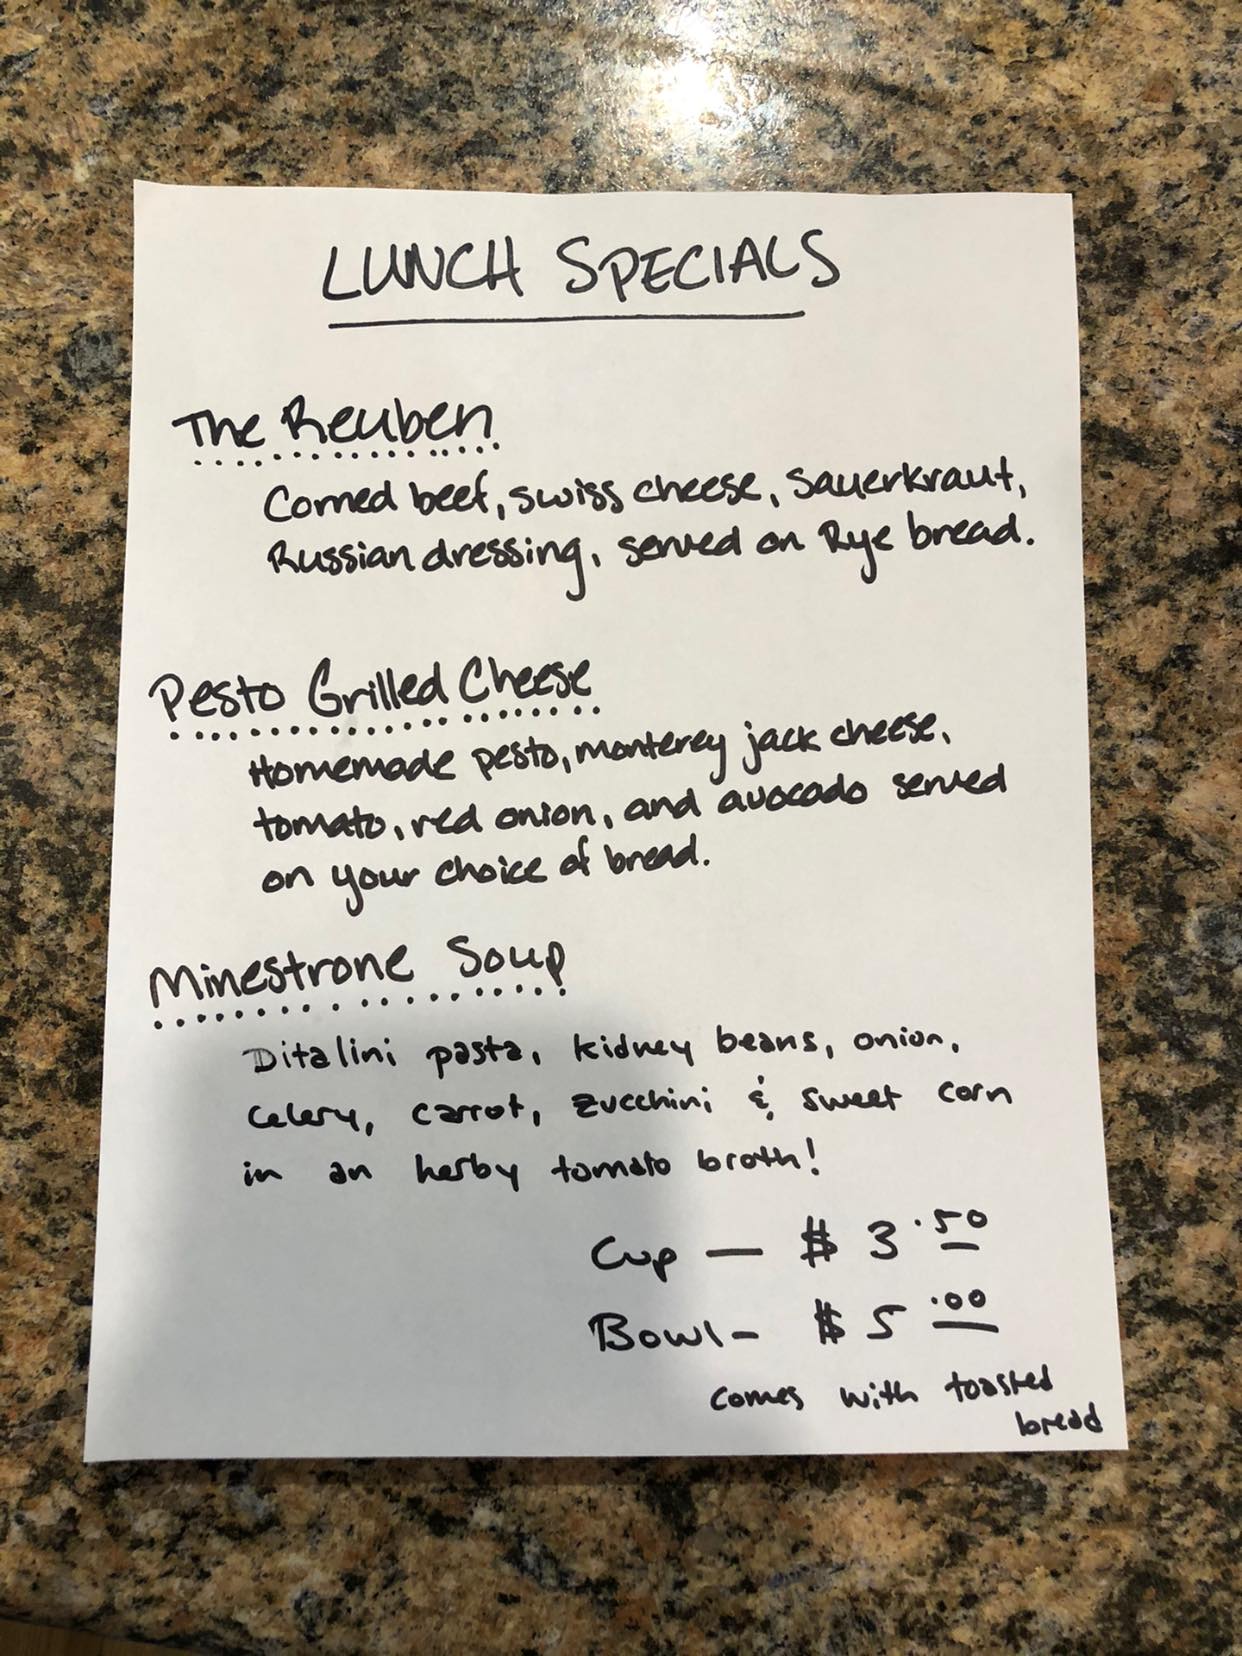 LUNCH SPECIALS
The Reuben
Corned beef, swiss cheese, sauerkraut,
Russian dressing, served on Rye bread.
Pesto Grilled Cheese
Homemade pesto, monterey jack cheese,
tomato, red onion, and avocado served
on your choice of bread.
Minestrone Soup
Ditalini pasta, kidney beans, onion,
celery, carrot, zucchini & sweet corn
in an herby tomato broth!
Cup — $3.50
Bowl - $5.00
comes with toasted
bread